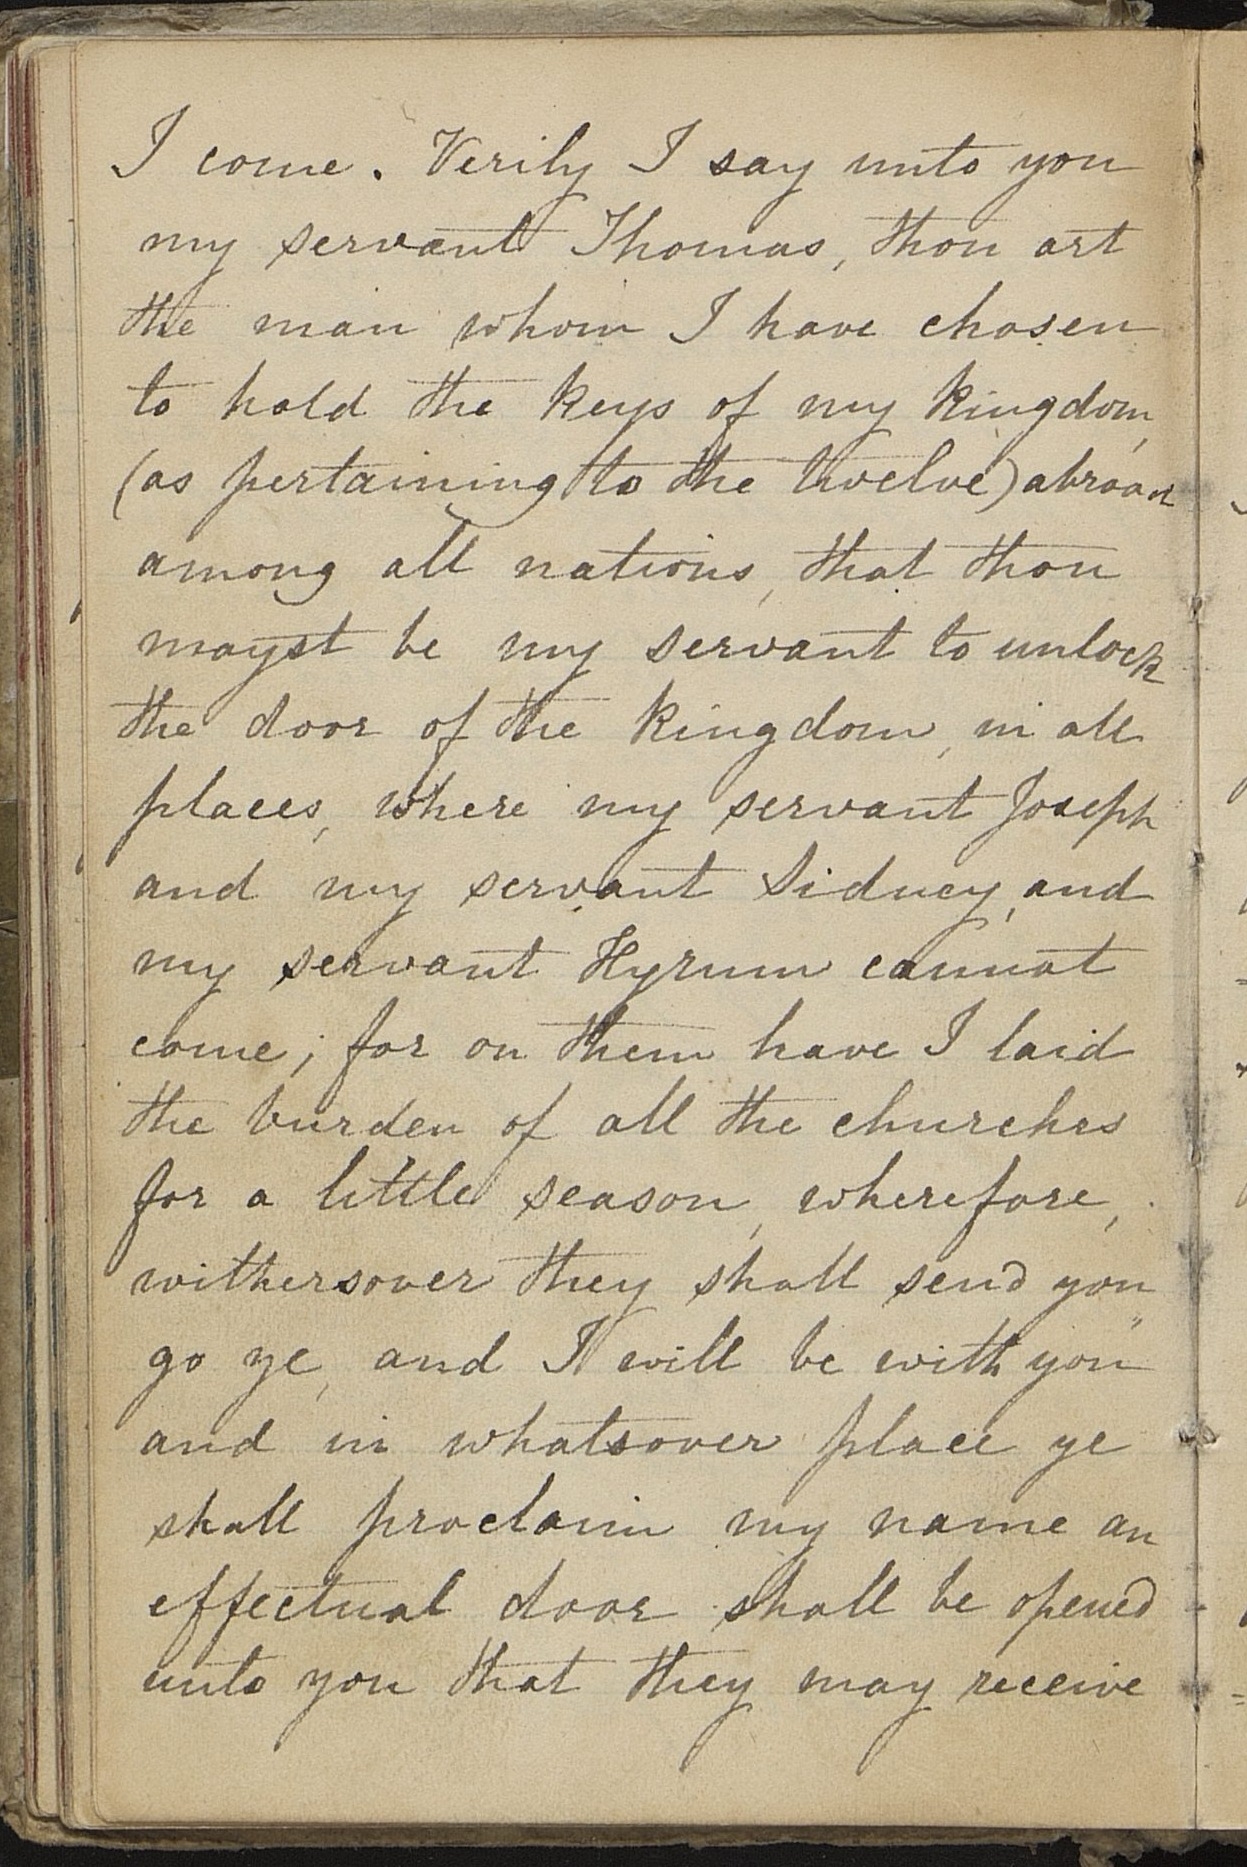 I come. Verily I say unto you
my servant Thomas, thou art
the man whom I have chosen
to hold the keys of my kingdom,
(as pertaining to the twelve) abroad
among all nations, that thou
mayst be my servant to unlock
the door of the kingdom, in all
places, where my servant Joseph
and my servant Sidney, and
my servant Hyrum cannot
come; for on them have I laid
the burden of all the churches
for a little season, wherefore,
withersover they shall send you
go ye, and I will be with you
and in whatsover place ye
shall proclaim my name an
effectual door shall be opened
unto you that they may receive